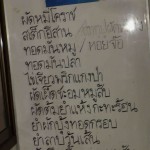 ผัดหมี่โคราช
สเต็กอีสาน
ทอดมันหมู / หอยจ๊อ
ทอดมันปลา
ไข่เจียวพริกแกงป่า
ผัดเผ็ดชะอมหมูสับ
ผัดต้มยำแห้งกะทะร้อน
ยำผักบุ้งทอดกรอบ
ยำสาปวุ้นเส้น